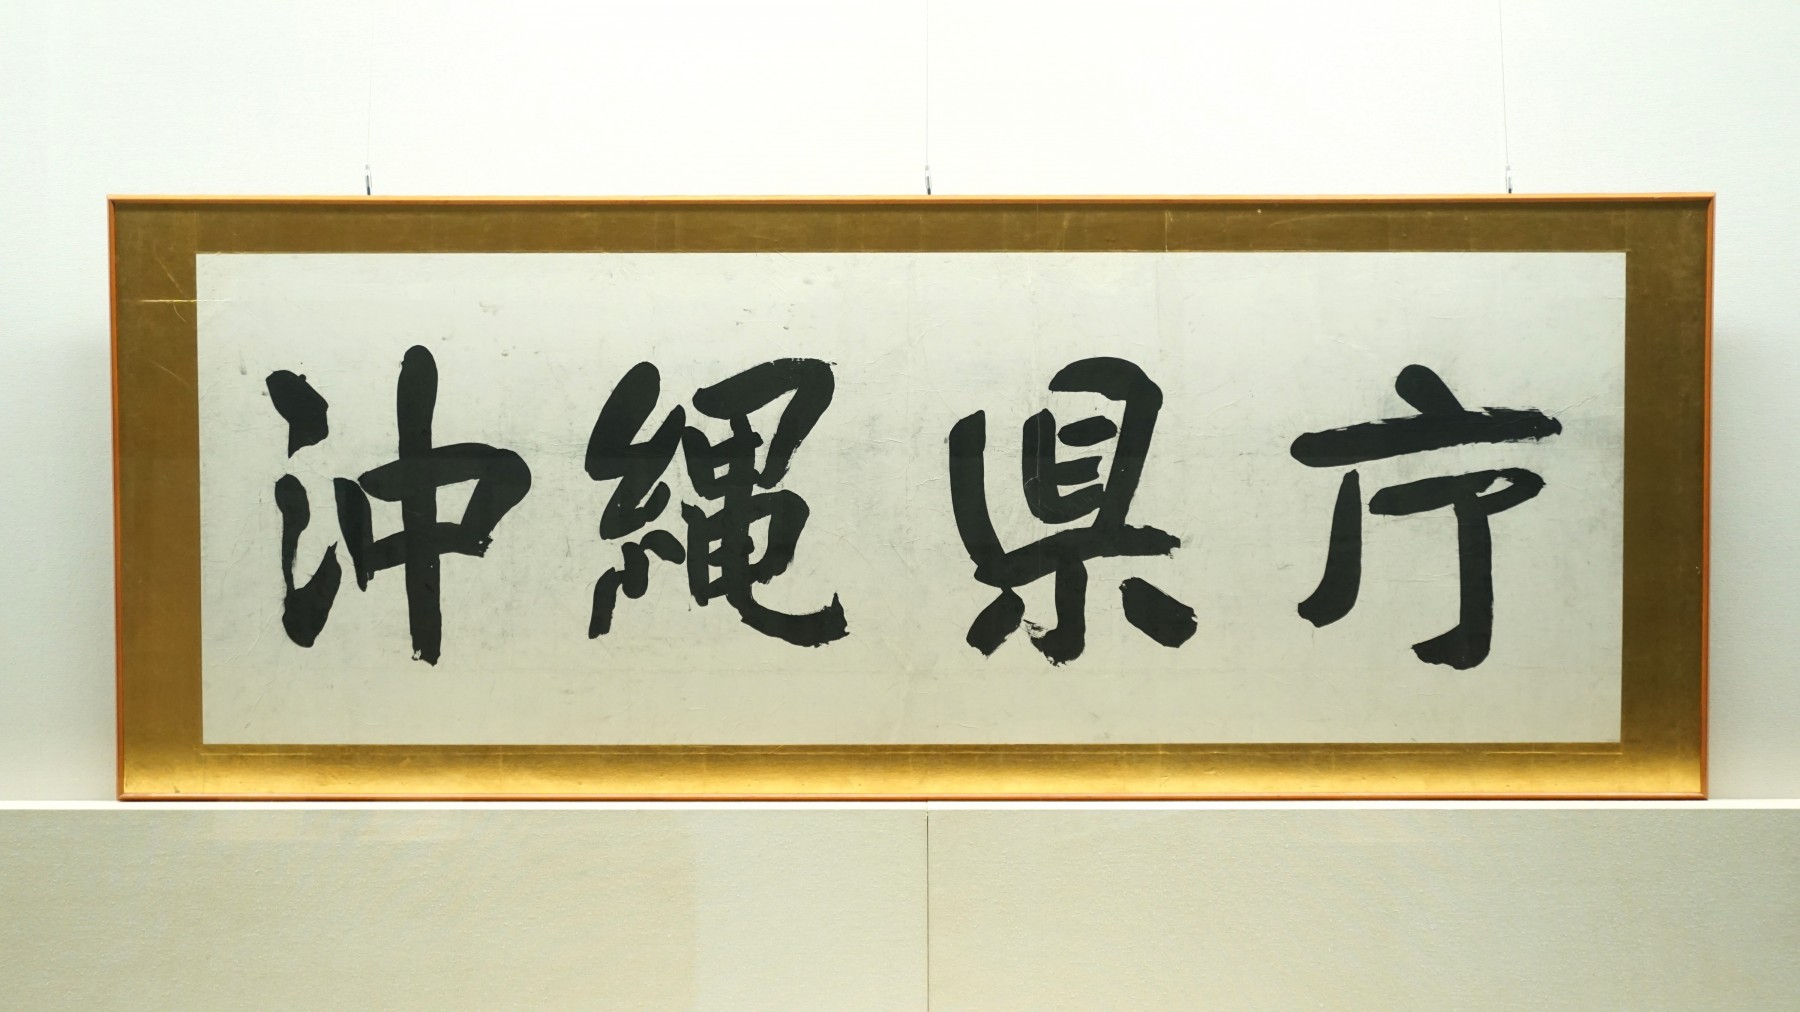 沖縄県庁